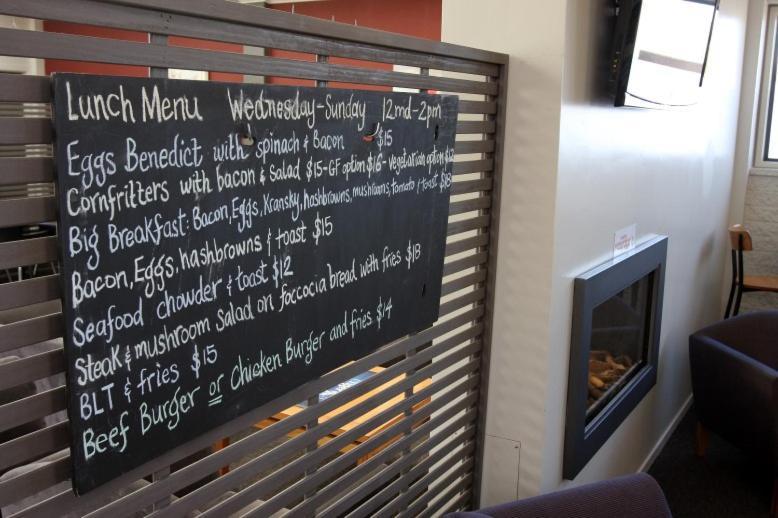 Lunch Menu Wednesday-Sunday 12md-2pm
Eggs Benedict with spinach & Bacon $15
Cornfritters with bacon & salad $15-GF option $16- vegetarian option $12
Big Breakfast: Bacon, Eggs, Kransky, hashbrowns, mushrooms, tomato & toast $18
Bacon, Eggs, hashbrowns & toast $15
Seafood chowder & toast $12
Steak & mushroom Salad on foccocia bread with fries $18
BLT & fries $15
Beef Burger or Chicken Burger and fries $14